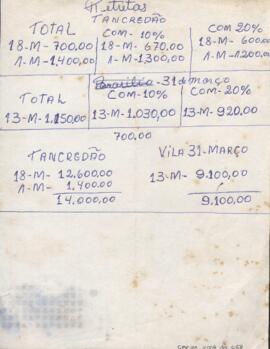 TANCREDÃO
TOTAL COM-10% COM 20%
18-M-700,00 18-M-670,00 18-M-600,00
1-M-1.400,00 1-M-1300,00 1-M-1.200,00
31 de março
TOTAL COM-10% COM-20%
13-M-1.150,00 13-M-1.030,00 13-M-920,00
700,00
TANCREDÃO VILA 31-MARÇO
18-M-12.600,00 13-M-9.100,00
1-M-1.400,00
14.000,00 9.100,00